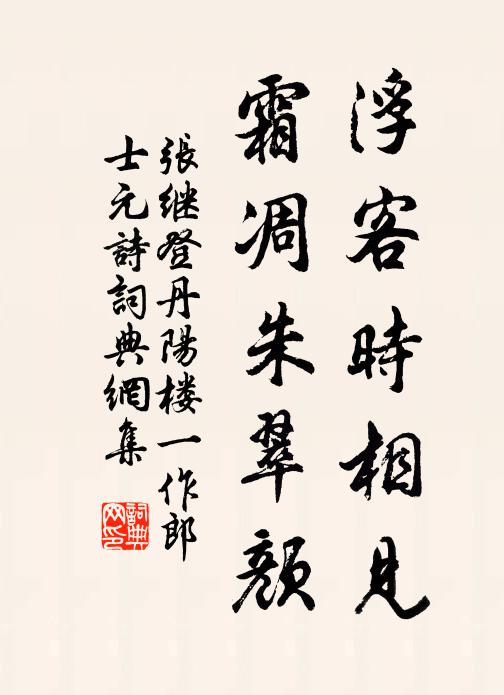 浮客時相見
霜凋朱翠顔
張继登丹陽楼一作郎
士元詩詞典網集
詞典網印